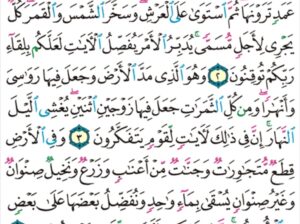 عَمَدٍ تَرَوْنَهَا ثُمَّ ٱسْتَوَىٰ عَلَى ٱلْعَرْشِ وَسَخَّرَ ٱلشَّمْسَ وَٱلْقَمَرَ كُلٌّ
يَجْرِى لِأَجَلٍ مُّسَمًّى يُدَبِّرُ ٱلْأَمْرَ يُفَصِّلُ ٱلْءَايَٰتِ لَعَلَّكُم بِلِقَآءِ
رَبِّكُمْ تُوقِنُونَ ٢ وَهُوَ ٱلَّذِى مَدَّ ٱلْأَرْضَ وَجَعَلَ فِيهَا رَوَٰسِىَ
وَأَنْهَٰرًا وَمِن كُلِّ ٱلثَّمَرَٰتِ جَعَلَ فِيهَا زَوْجَيْنِ ٱثْنَيْنِ يُغْشِى ٱلَّيْلَ
ٱلنَّهَارَ إِنَّ فِى ذَٰلِكَ لَءَايَٰتٍ لِّقَوْمٍ يَتَفَكَّرُونَ ٣ وَفِى ٱلْأَرْضِ
قِطَعٌ مُّتَجَٰوِرَٰتٌ وَجَنَّٰتٌ مِّنْ أَعْنَٰبٍ وَزَرْعٌ وَنَخِيلٌ صِنْوَانٌ
وَغَيْرُ صِنْوَانٍ يُسْقَىٰ بِمَآءٍ وَٰحِدٍ وَنُفَضِّلُ بَعْضَهَا عَلَىٰ بَعْضٍ